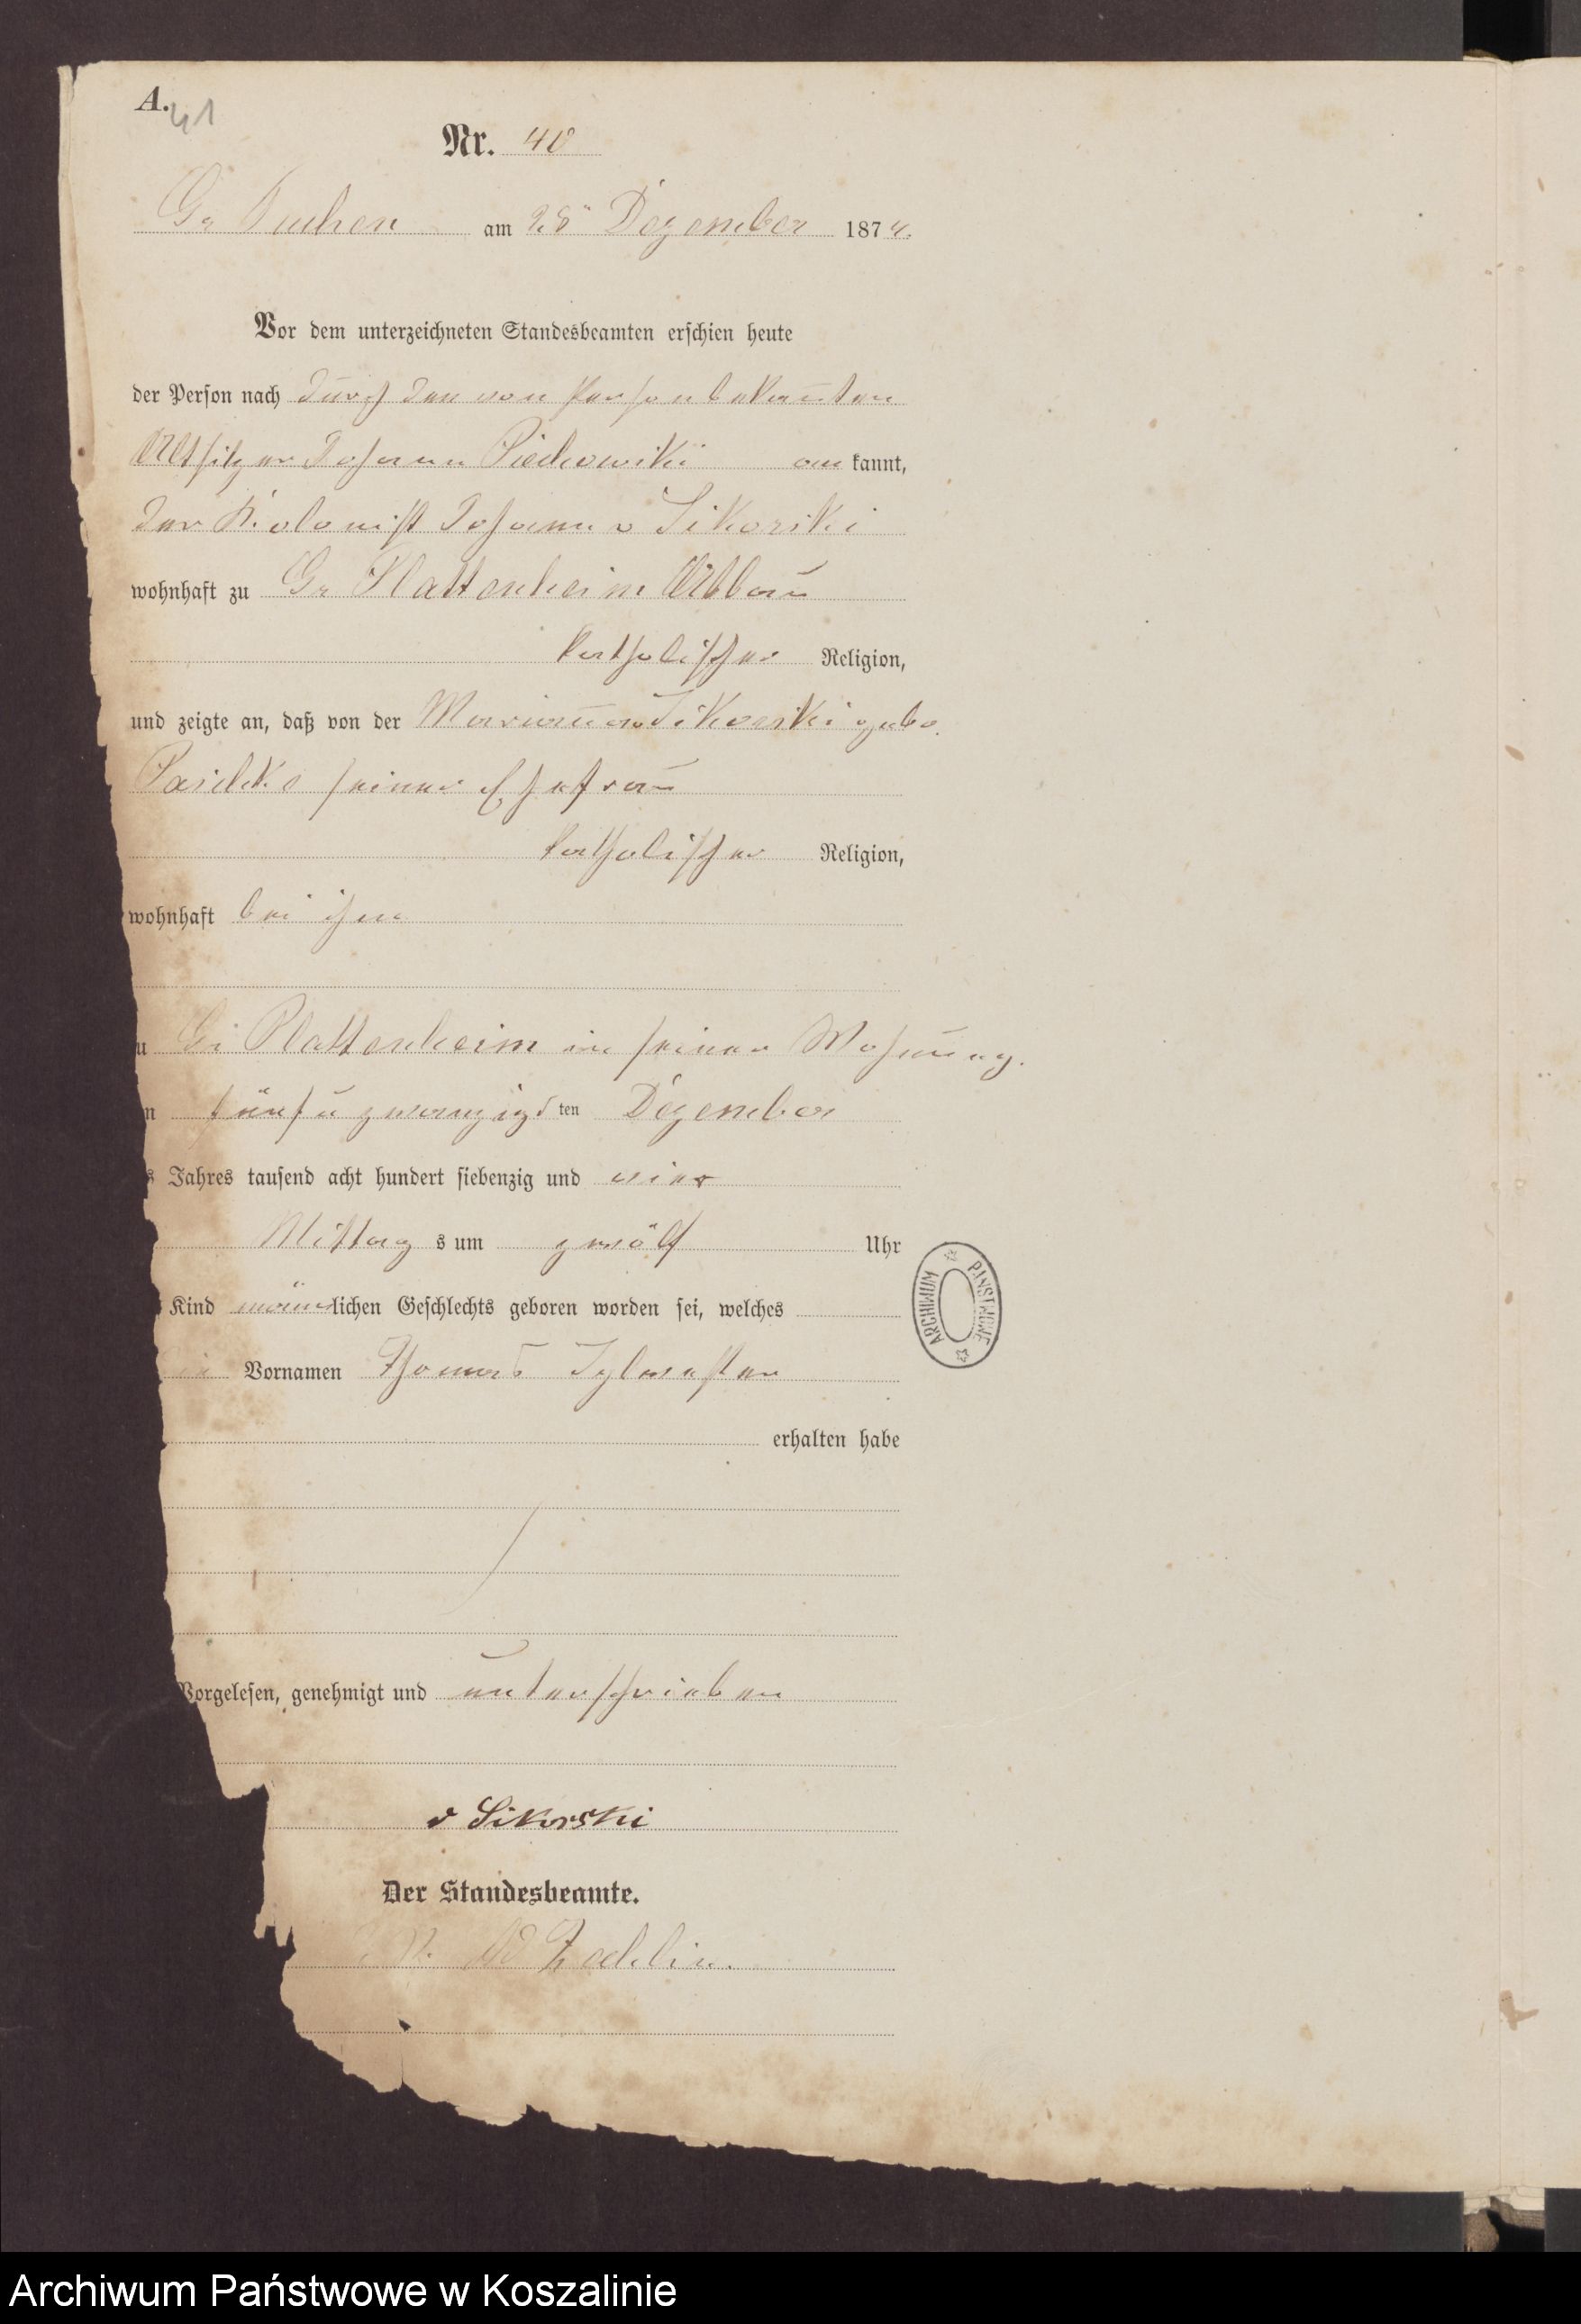 A.
41
Nr. 40
Gr Tuchen am 28ten Dezember 1874.
Vor dem unterzeichneten Standesbeamten erschien heute
der Person nach durch den von Person bekannten
Altsitzer Johann Piechowski an kannt,
der Kolonist Johann v Sikorski
wohnhaft zu Gr Plattenheim Abbau
katholischer Religion,
und zeigte an, daß von der Marianna Sikorski gebo.
seiner Ehefrau
katholischer Religion,
wohnhaft bei ihm
u Gr Plattenheim in seiner Wohnung.
n fünfu zwanzigsten Dezember
s Jahres tausend acht hundert siebenzig und vier
Mittag s um zwölf Uhr
Kind männlichen Geschlechts geboren worden sei, welches
Vornamen Thomas Sylvester
erhalten habe
Vorgelesen, genehmigt und unterschrieben
v Sikorski
Der Standesbeamte.
ARCHIWUM PAŃSTWOWE
Archiwum Państwowe w Koszalinie